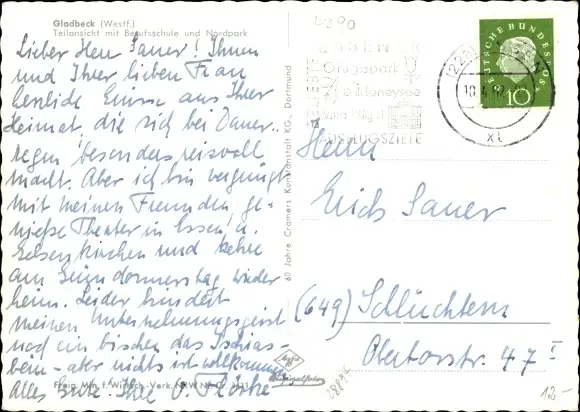 Gladbeck (Westf.)
Teilansicht mit Berufsschule und Nordpark
Lieber Herr Sauer! Ihnen
und Ihrer lieben Frau
herzliche Grüsse aus Ihrer
Heimat, die sich bei Dauer-
regen besonders reizvoll
macht. Aber ich bin vergnügt
mit meinen Freunden, ge-
niesse Theater in Essen u.
Gelsenkirchen und kehre
am Gründonnerstag wieder
heim. Leider hindert
meinen Unternehmungsgeist
noch ein bischen das Ischias-
bein – aber nichts ist vollkommen
Alles Gute. Ihre
60 Jahre Cramers Kunstanstalt KG., Dortmund
ESSEN
Grugapark
Baldeneysee
Villa Hügel
BELIEBTE
AUSFLUGSZIELE
DEUTSCHE BUNDESPOST
10
Herrn
Erich Sauer
(649) Schlüchtern
Obertorstr. 47 I
Agfa
12.-